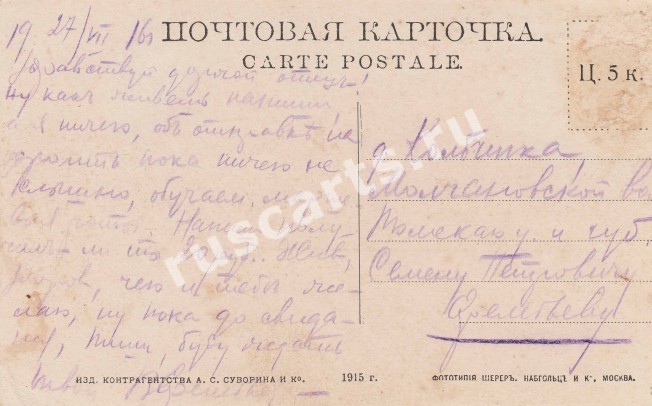 19 27/VII 16
ПОЧТОВАЯ КАРТОЧКА.
CARTE POSTALE.
Ц. 5 к.
Здравствуй дорогой отецъ!
ну какъ живешь напиши
а я ничего, объ отправкѣ на
пока ничего не
слышно, обучаем
роты. Напиши полу-
чилъ ли ты 20 руб. Живъ,
здоров, чего и тебѣ же-
лаю, ну пока до свида-
ния, пиши, буду ждать
твой
д. Колбинка
Молчановской вол
Томскаго у. и губ.
Семену Петровичу
ruscarts.ru
ИЗД. КОНТРАГЕНТСТВА А. С. СУВОРИНА И Ко.
1915 г.
ФОТОТИПІЯ ШЕРЕРЪ, НАБГОЛЬЦЪ И Ко, МОСКВА.